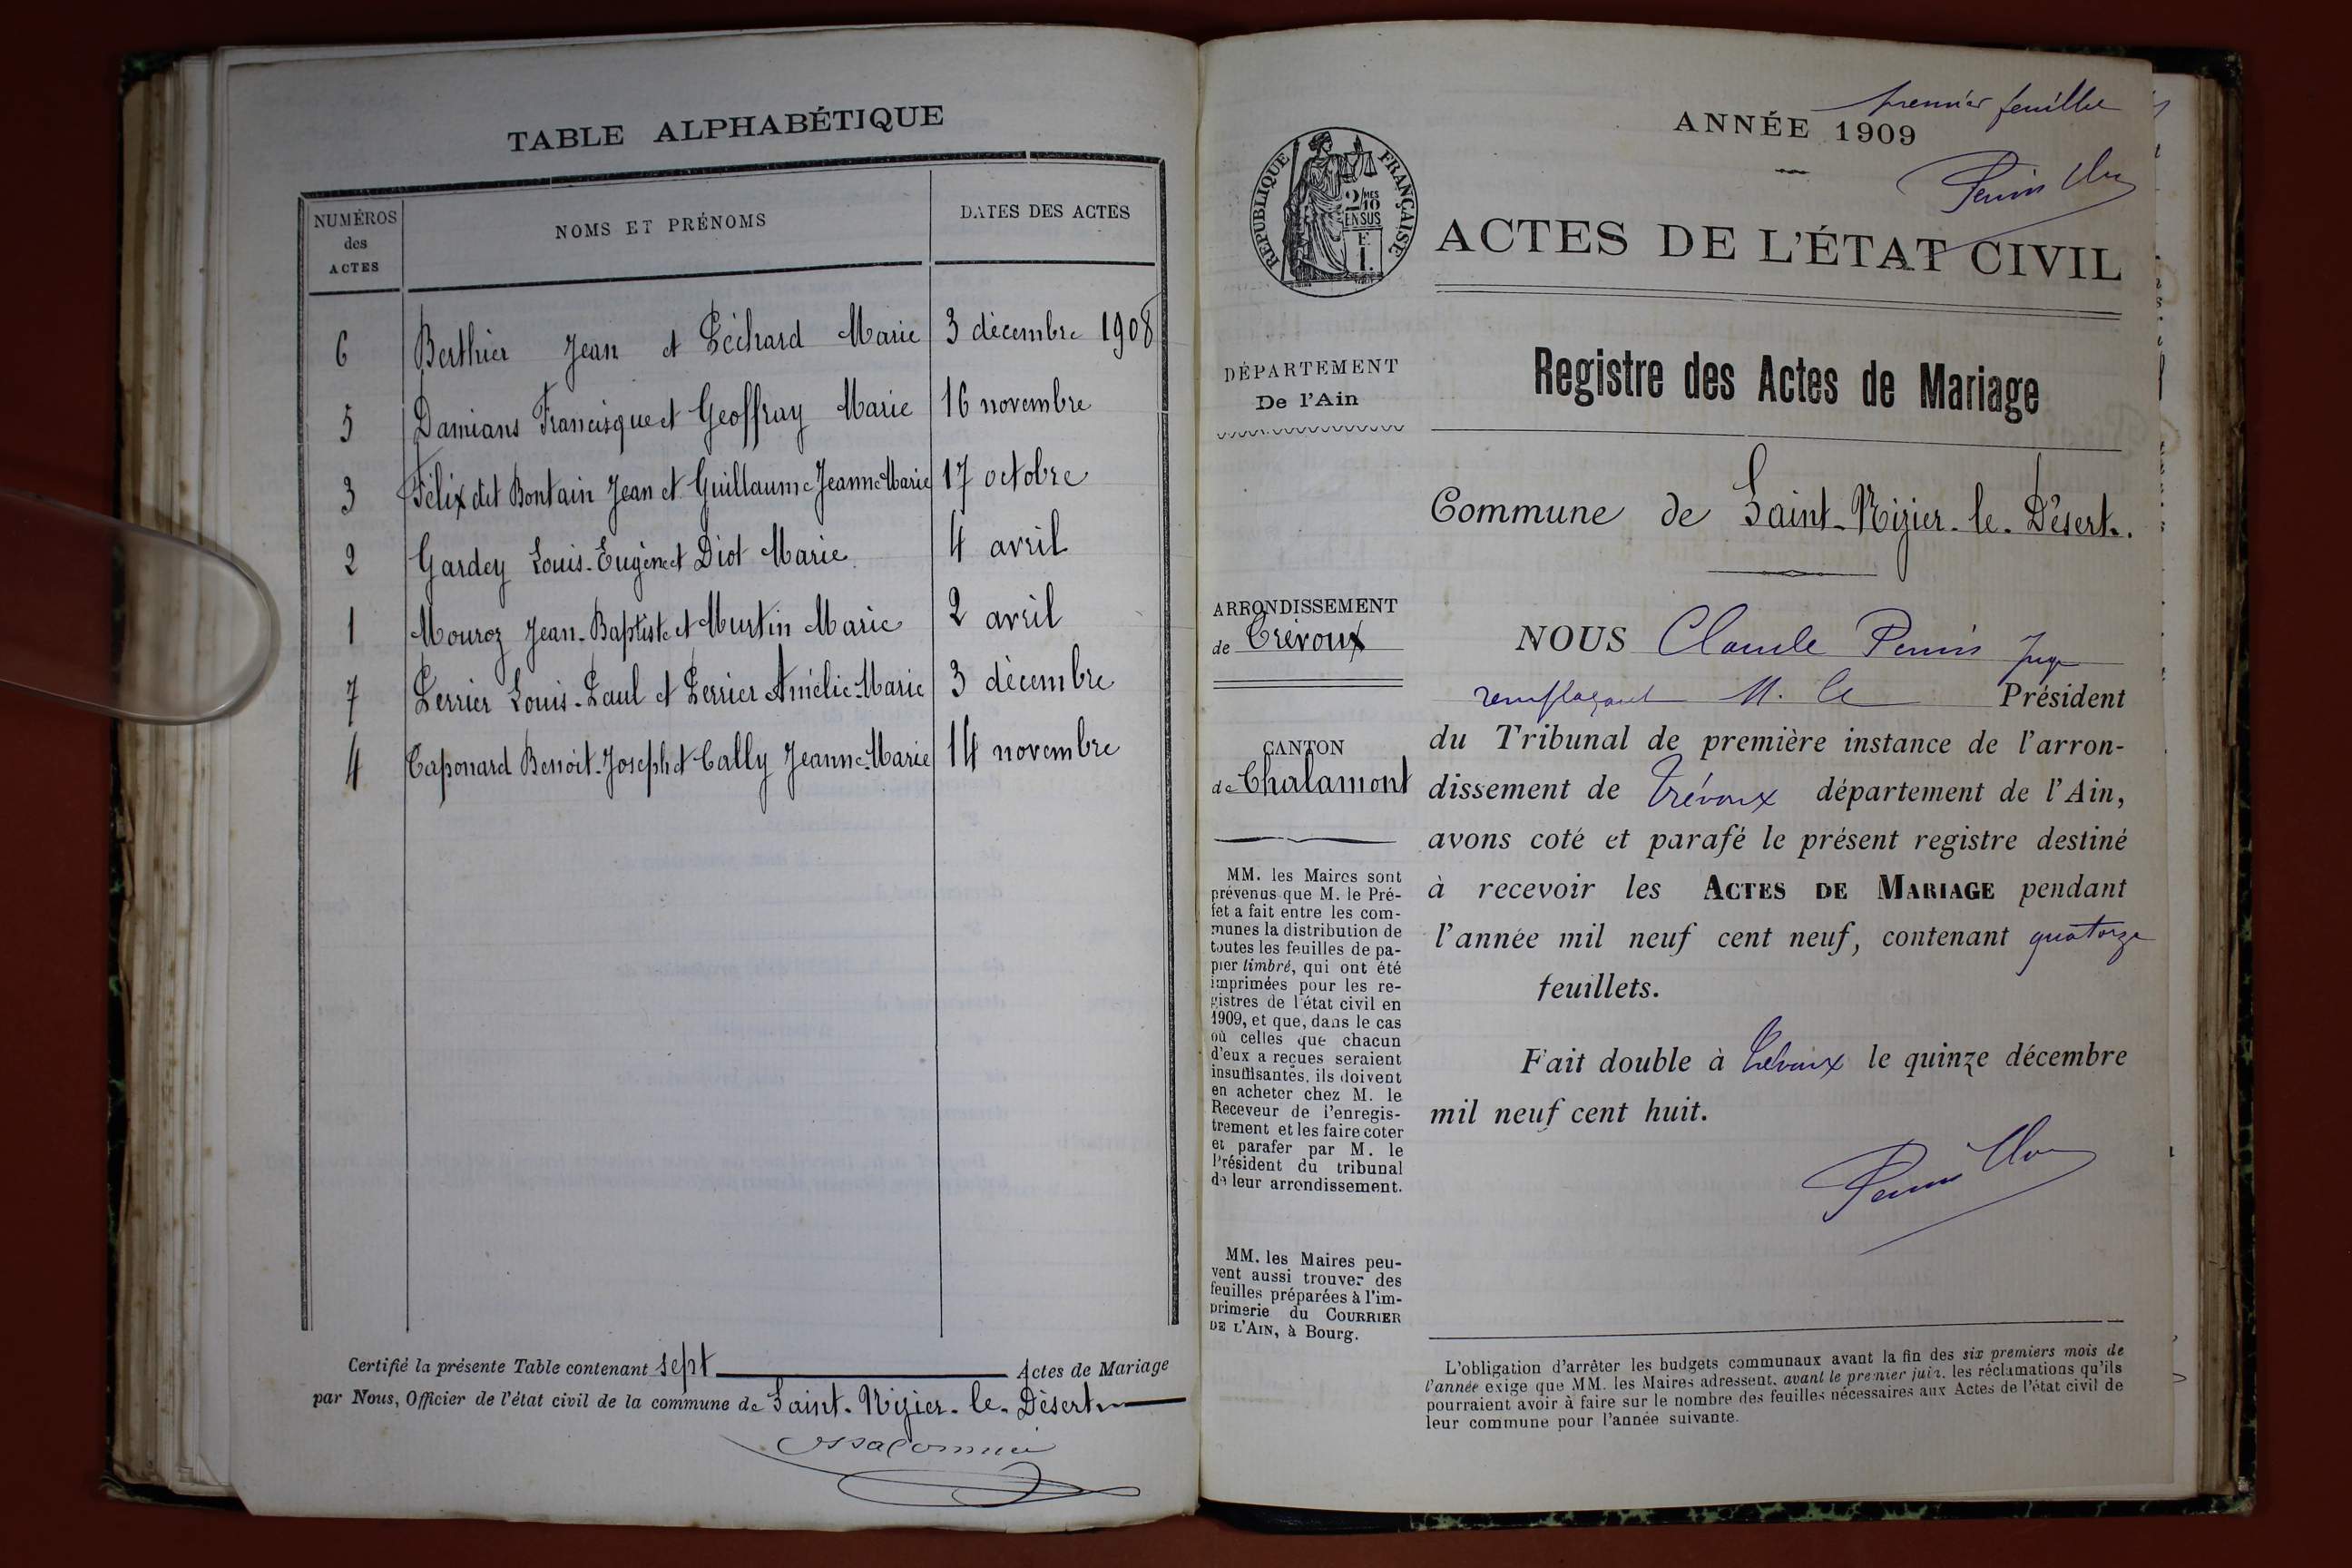 TABLE ALPHABÉTIQUE
NUMÉROS
des
ACTES
NOMS ET PRÉNOMS
DATES DES ACTES
6 Berthier Jean et Péchard Marie 3 décembre 1908
5 Damians Francisque et Geoffray Marie 16 novembre
3 Félix dit Bontain Jean et Guillaume Jeanne Marie 17 octobre
2 Gardey Louis-Eugène et Diot Marie 4 avril
1 Mouroz Jean-Baptiste et Murtin Marie 2 avril
7 Perrier Louis-Paul et Perrier Amélie-Marie 3 décembre
4 Taponard Benoit-Joseph et Cally Jeanne-Marie 14 novembre
Certifié la présente Table contenant sept Actes de Mariage
par Nous, Officier de l'état civil de la commune de Saint-Nizier-le-Désert
premier feuillet
ANNÉE 1909
RÉPUBLIQUE FRANÇAISE
2/10 MES
EN SUS
ACTES DE L'ÉTAT CIVIL
DÉPARTEMENT
De l'Ain
Registre des Actes de Mariage
Commune de Saint-Nizier-le-Désert.
ARRONDISSEMENT
de Trévoux
CANTON
de Chalamont
MM. les Maires sont
prévenus que M. le Pré-
fet a fait entre les com-
munes la distribution de
toutes les feuilles de pa-
pier timbré, qui ont été
imprimées pour les re-
gistres de l'état civil en
1909, et que, dans le cas
où celles que chacun
d'eux a reçues seraient
insuffisantes, ils doivent
en acheter chez M. le
Receveur de l'enregis-
trement et les faire coter
et parafer par M. le
Président du tribunal
de leur arrondissement.
MM. les Maires peu-
vent aussi trouver des
feuilles préparées à l'im-
primerie du COURRIER
DE L'AIN, à Bourg.
NOUS Claude Perris Juge
remplaçant M. le Président
du Tribunal de première instance de l'arron-
dissement de Trévoux département de l'Ain,
avons coté et parafé le présent registre destiné
à recevoir les ACTES DE MARIAGE pendant
l'année mil neuf cent neuf, contenant quatorze
feuillets.
Fait double à Trévoux le quinze décembre
mil neuf cent huit.
L'obligation d'arrêter les budgets communaux avant la fin des six premiers mois de
l'année exige que MM. les Maires adressent, avant le premier juin, les réclamations qu'ils
pourraient avoir à faire sur le nombre des feuilles nécessaires aux Actes de l'état civil de
leur commune pour l'année suivante.